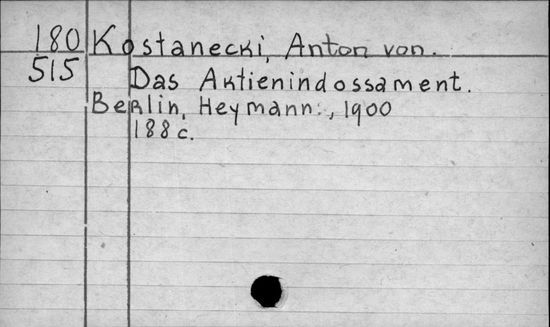 180 Kostanecki, Anton von.
515
Das Aktienindossament.
Berlin, Heymann, 1900
188 c.